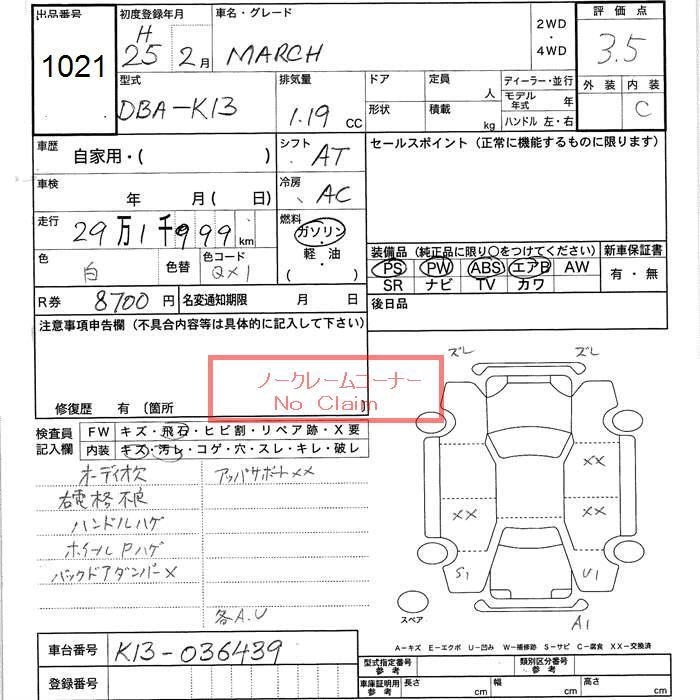 出品番号
1021
初度登録年月
H
25 2月
車名・グレード
MARCH
2WD
・
4WD
評価点
3.5
型式
DBA-K13
排気量
1.19 CC
ドア
定員
人
形状
積載
kg
ディーラー・並行
モデル年式 年
ハンドル 左・右
外装 内装
C
車歴
自家用・( )
シフト
AT
セールスポイント (正常に機能するものに限ります)
車検
年 月( 日)
冷房
AC
走行
29万1千999 km
燃料
ガソリン
・
軽油
( )
色
白
色替
色コード
QX1
装備品 (純正品に限り○をつけてください)
新車保証書
PS PW ABS エアB AW
SR ナビ TV カワ
有・無
R券 8700円
名変通知期限 月 日
後日品
注意事項申告欄 (不具合内容等は具体的に記入して下さい)
ノークレームコーナー
No Claim
修復歴 有 〔箇所
検査員
記入欄
FW キズ・飛石・ヒビ割・リペア跡・X要
内装 キズ・汚レ・コゲ・穴・スレ・キレ・破レ
オーディオ欠
アッパサポートXX
右電格不良
ハンドルハゲ
ホイールPハゲ
バックドアダンパーX
各A.U
ズレ
ズレ
XX
XX
XX
S1
U1
A1
スペア
A-キズ E-エクボ U-凹み W-補修跡 S-サビ C-腐食 XX-交換済
車台番号
K13-036439
登録番号
型式指定番号
参考
類別区分番号
参考
車庫証明用
参考
長さ cm
幅 cm
高さ cm